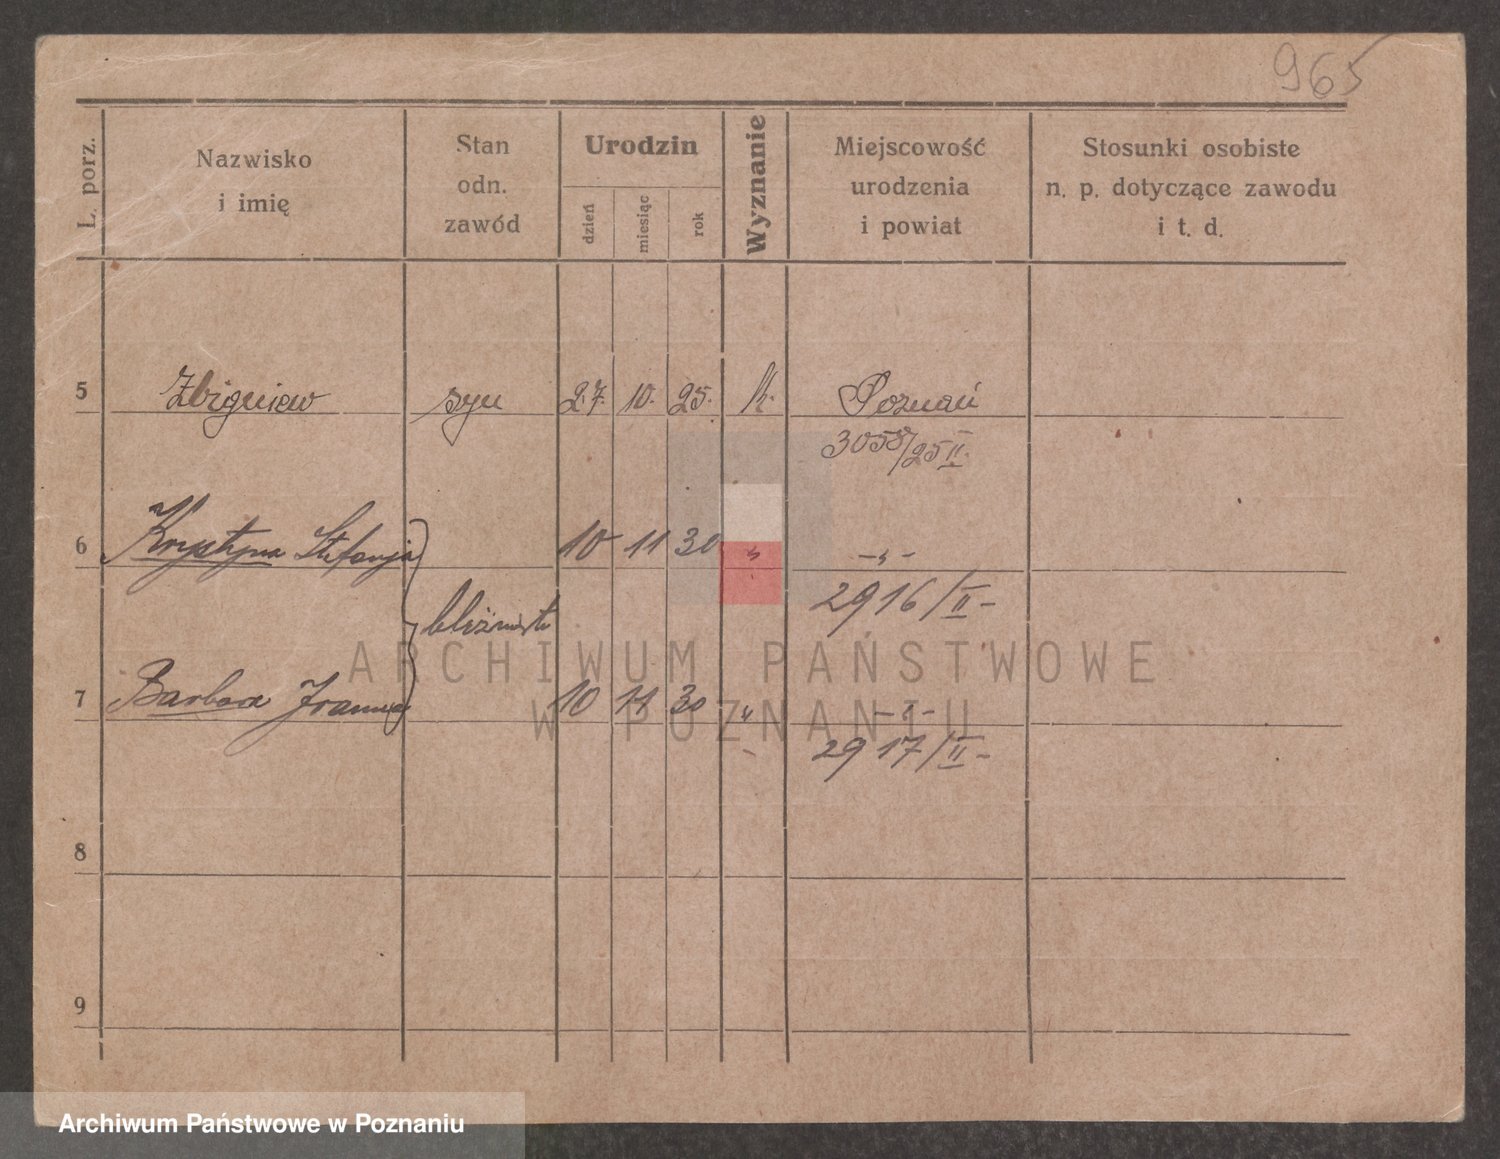 965
L. porz.
Nazwisko i imię
Stan odn. zawód
Urodzin
dzień
miesiąc
rok
Wyznanie
Miejscowość urodzenia i powiat
Stosunki osobiste n. p. dotyczące zawodu i t. d.
5 Zbigniew syn 27. 10. 25. k. Poznań
3058/25 II.
6 Krystyna Stefanja 10 11 30 " -"-
2916/II-
bliźnięta
7 Barbara Joanna 10 11 30 " -"-
2917/II-
8
9
ARCHIWUM PAŃSTWOWE
W POZNANIU
Archiwum Państwowe w Poznaniu